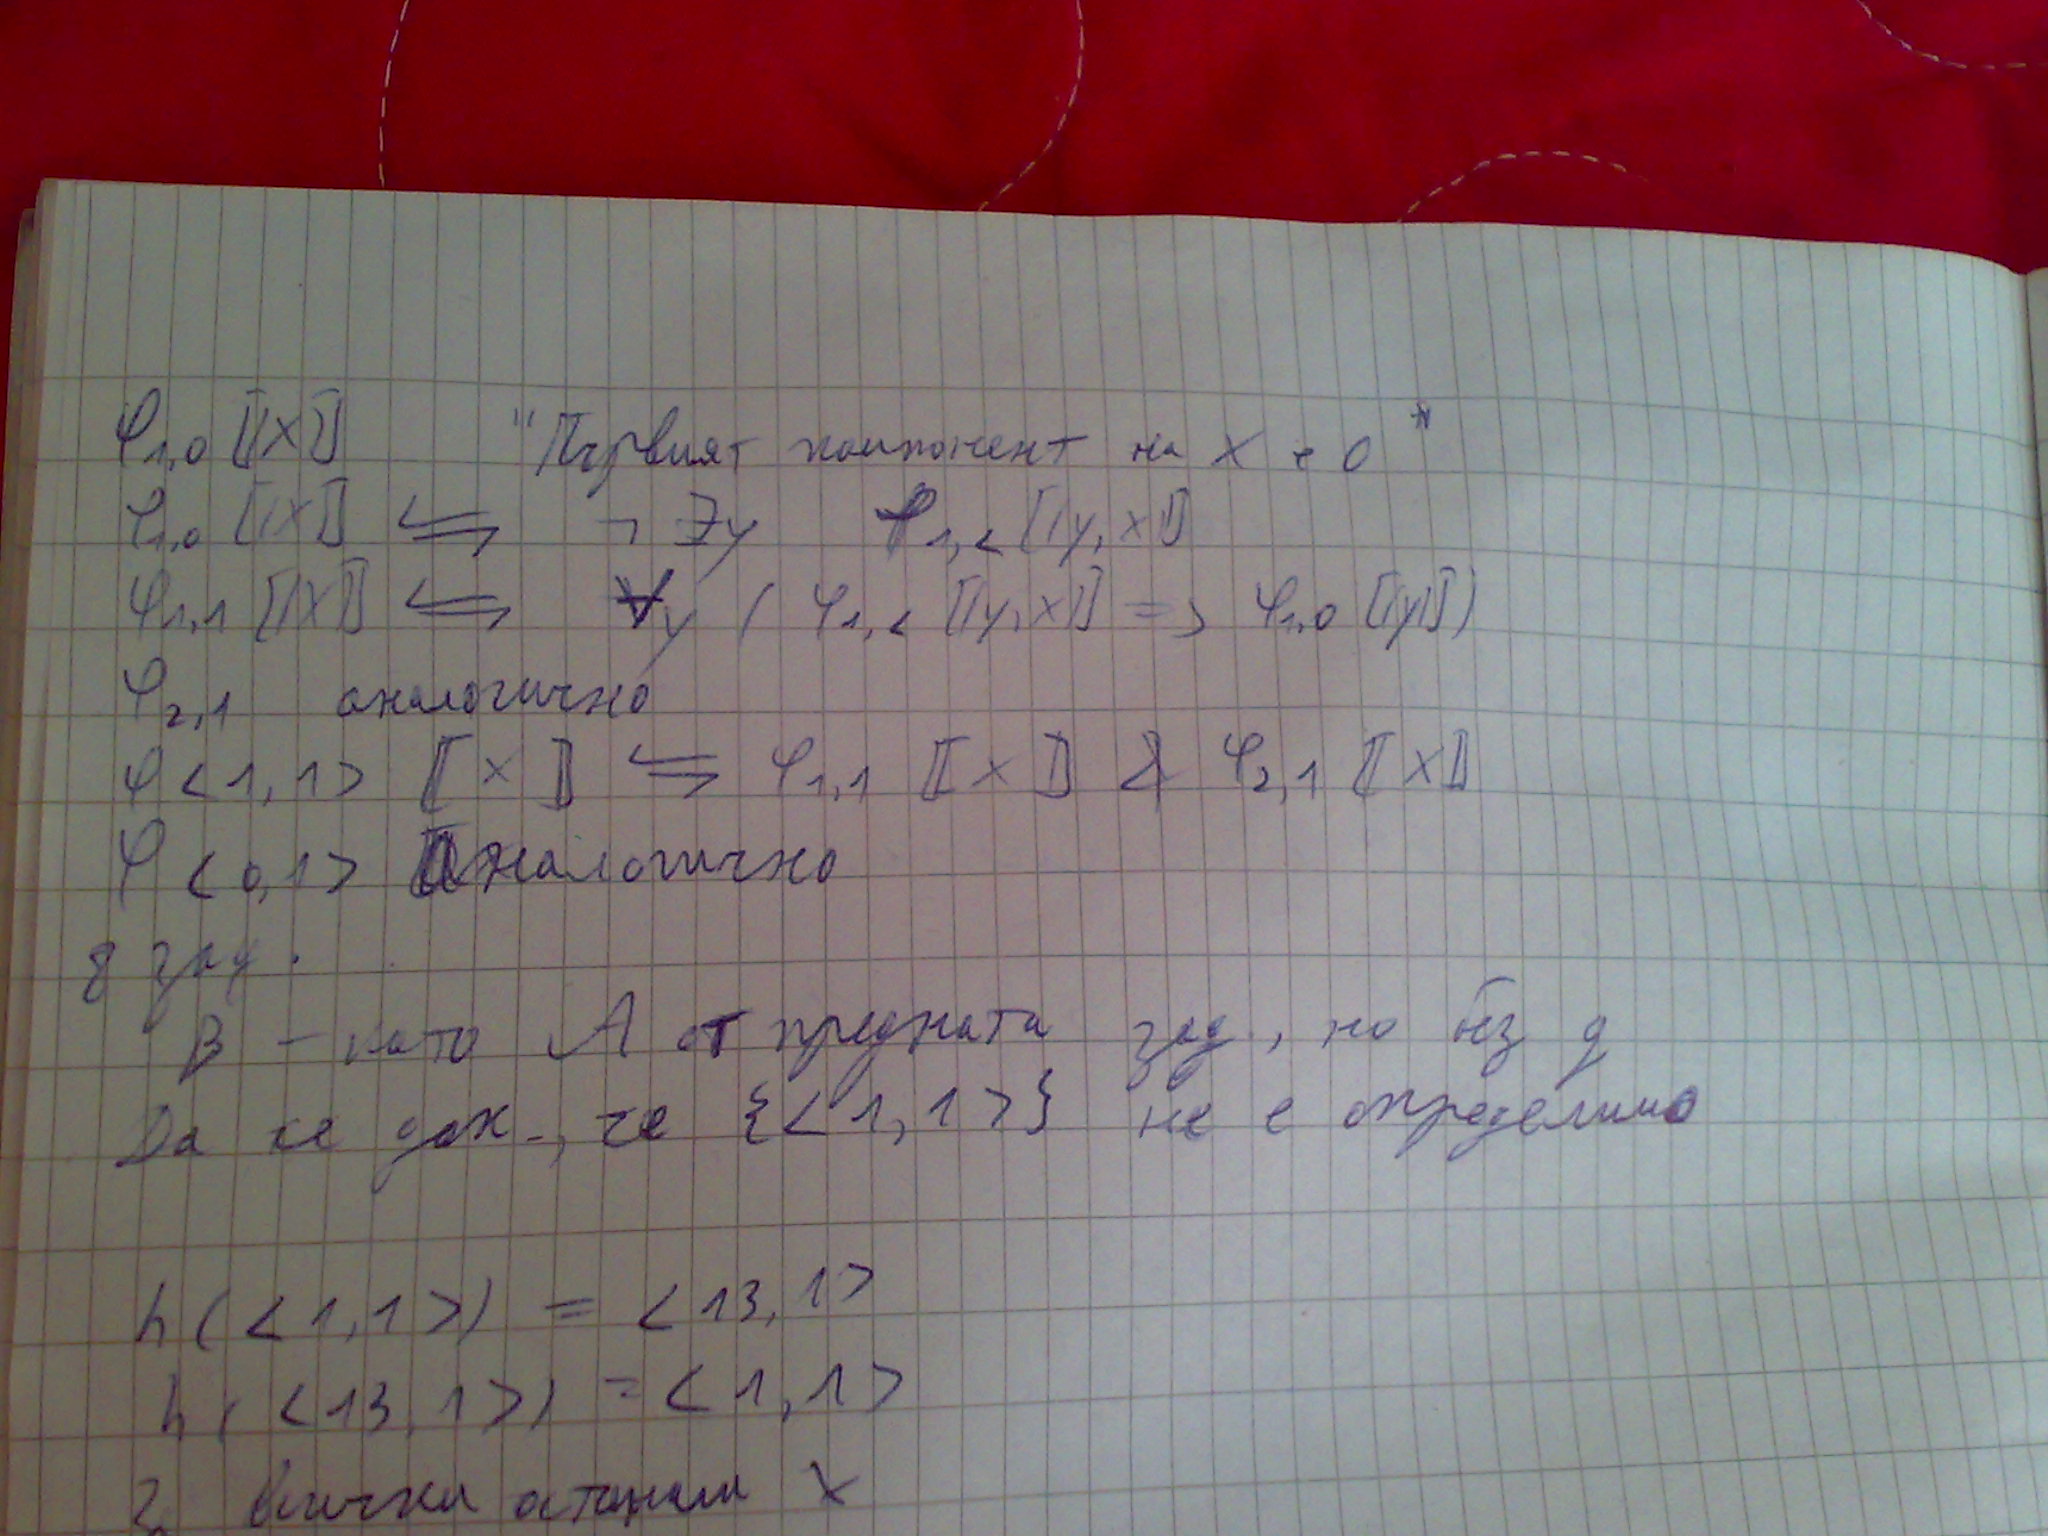 φ₁,₀ ⟦x⟧ "Първият компонент на x е 0"
φ₁,₀ ⟦x⟧ ⇋ ¬∃y φ₁,< ⟦y, x⟧
φ₁,₁ ⟦x⟧ ⇋ ∀y ( φ₁,< ⟦y, x⟧ => φ₁,₀ ⟦y⟧)
φ₂,₁ аналогично
φ<1,1> ⟦x⟧ ⇋ φ₁,₁ ⟦x⟧ & φ₂,₁ ⟦x⟧
φ<0,1> аналогично
8 зад.
B - като A от предната зад., но без д
Да се док., че {<1,1>} не е определимо
h(<1,1>) = <13,1>
h(<13,1>) = <1,1>
За всички останали x